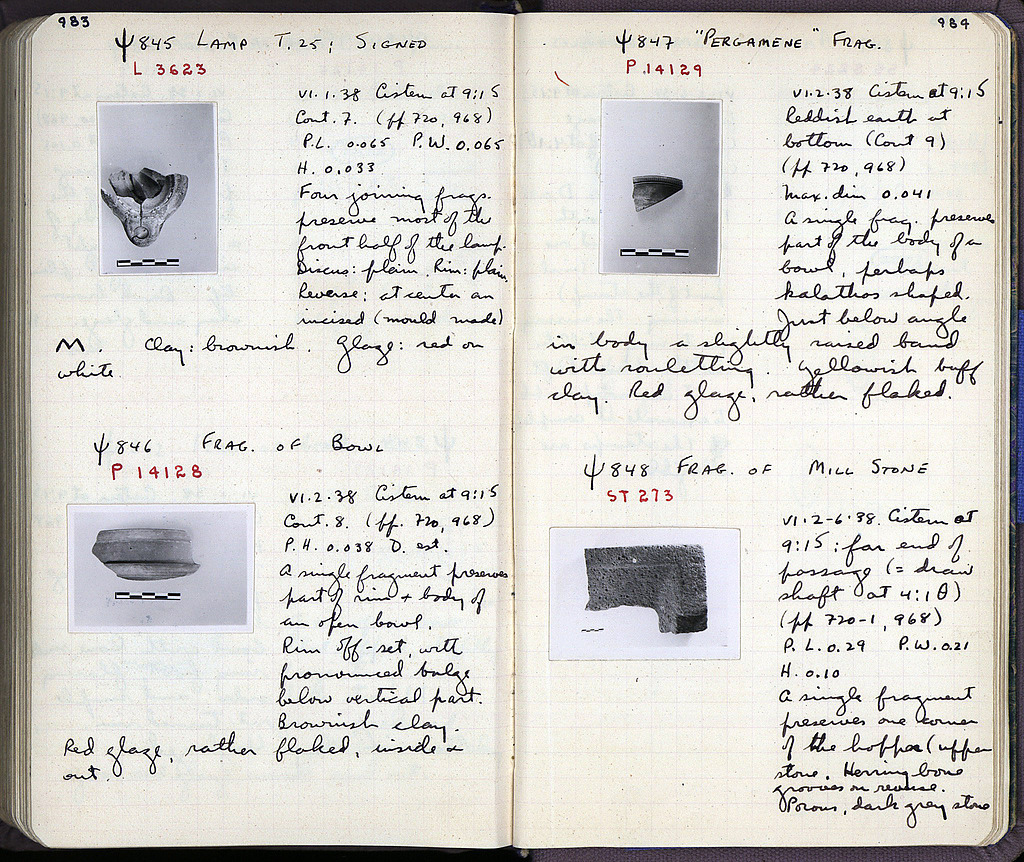 983
Ψ 845 LAMP T. 25; SIGNED
L 3623
VI.1.38 Cistern at 9:15
Cont. 7. (pp 720, 968)
P.L. 0.065 P.W. 0.065
H. 0.033
Four joining frags.
preserve most of the
front half of the lamp.
Discus: plain. Rim: plain.
Reverse: at center an
incised (mould made)
M. Clay: brownish. Glaze: red on
white.
Ψ 846 FRAG. OF BOWL
P 14128
VI.2.38 Cistern at 9:15
Cont. 8. (pp. 720, 968)
P.H. 0.038 D. est.
A single fragment preserves
part of rim + body of
an open bowl.
Rim off-set, with
pronounced bulge
below vertical part.
Brownish clay.
Red glaze, rather flaked, inside +
out.
984
Ψ 847 "PERGAMENE" FRAG.
P.14129
VI.2.38 Cistern at 9:15
Reddish earth at
bottom (Cont 9)
(pp 720, 968)
Max. dim 0.041
A single frag. preserves
part of the body of a
bowl, perhaps
kalathos shaped.
Just below angle
in body a slightly raised band
with rouletting. Yellowish buff
clay. Red glaze, rather flaked.
Ψ 848 FRAG. OF MILL STONE
ST 273
VI.2-6.38. Cistern at
9:15: far end of
passage (= draw
shaft at 4:1Θ)
(pp 720-1, 968)
P.L. 0.29 P.W. 0.21
H. 0.10
A single fragment
preserves one corner
of the hopper (upper
stone. Herring bone
grooves on reverse.
Porous, dark grey stone